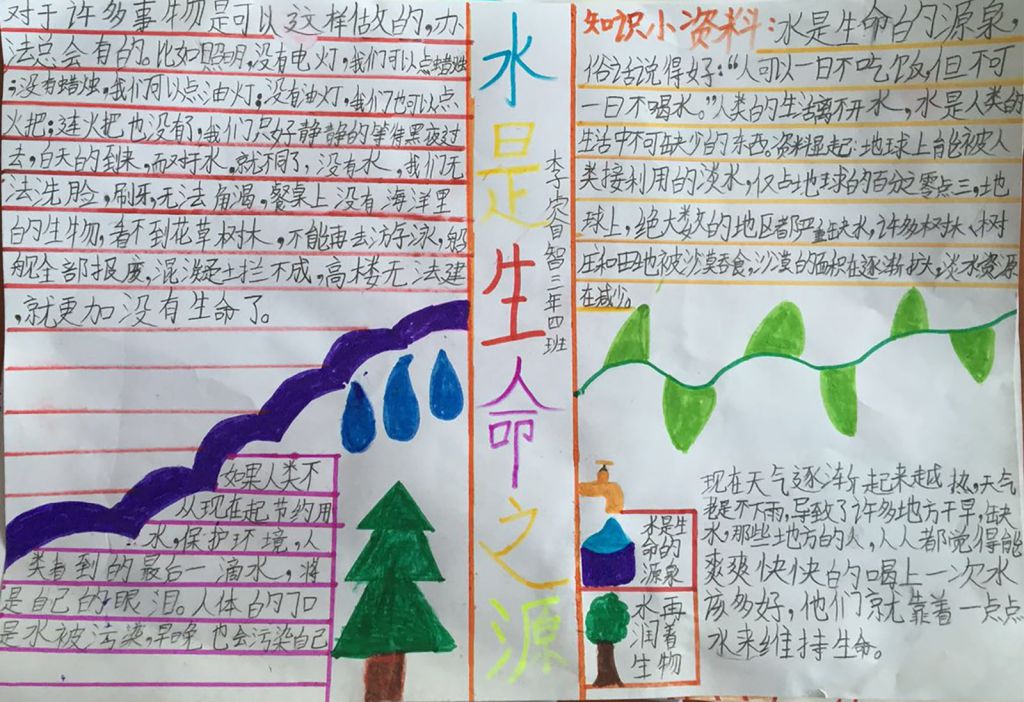 对于许多事物是可以这样做的,办
法总会有的。比如照明,没有电灯,我们可以点蜡烛
;没有蜡烛,我们可以点油灯;没有油灯,我们也可以点
火把;连火把也没有,我们只好静静的等待黑夜过
去,白天的到来,而对于水,就不同了,没有水,我们无
法洗脸,刷牙,无法解渴,餐桌上没有海洋里
的生物,看不到花草树木,不能再去游泳,船
舰全部报废,混凝土拦不成,高楼无法建
,就更加没有生命了。
如果人类不
从现在起节约用
水,保护环境,人
类看到的最后一滴水,将
是自己的眼泪。人体的
是水被污染,早晚也会污染自己
水是生命之源
李睿智三年四班
知识小资料:水是生命的源泉,
俗话说得好:“人可以一日不吃饭,但不可
一日不喝水。”人类的生活离不开水,水是人类的
生活中不可缺少的东西。资料显起:地球上能被人
类接利用的淡水,仅占地球的百分之零点三,地
球上,绝大数的地区都严重缺水,许多树林、村
庄和田地被沙漠吞食,沙漠的面积在逐渐扩大,淡水资源
在减少。
水是生
命的
源泉
水再
润着
生物
现在天气逐渐起来越热,天气
老是不下雨,导致了许多地方干旱,缺
水,那些地方的人,人人都觉得能
爽爽快快的喝上一次水
该多好,他们就靠着一点点
水来维持生命。